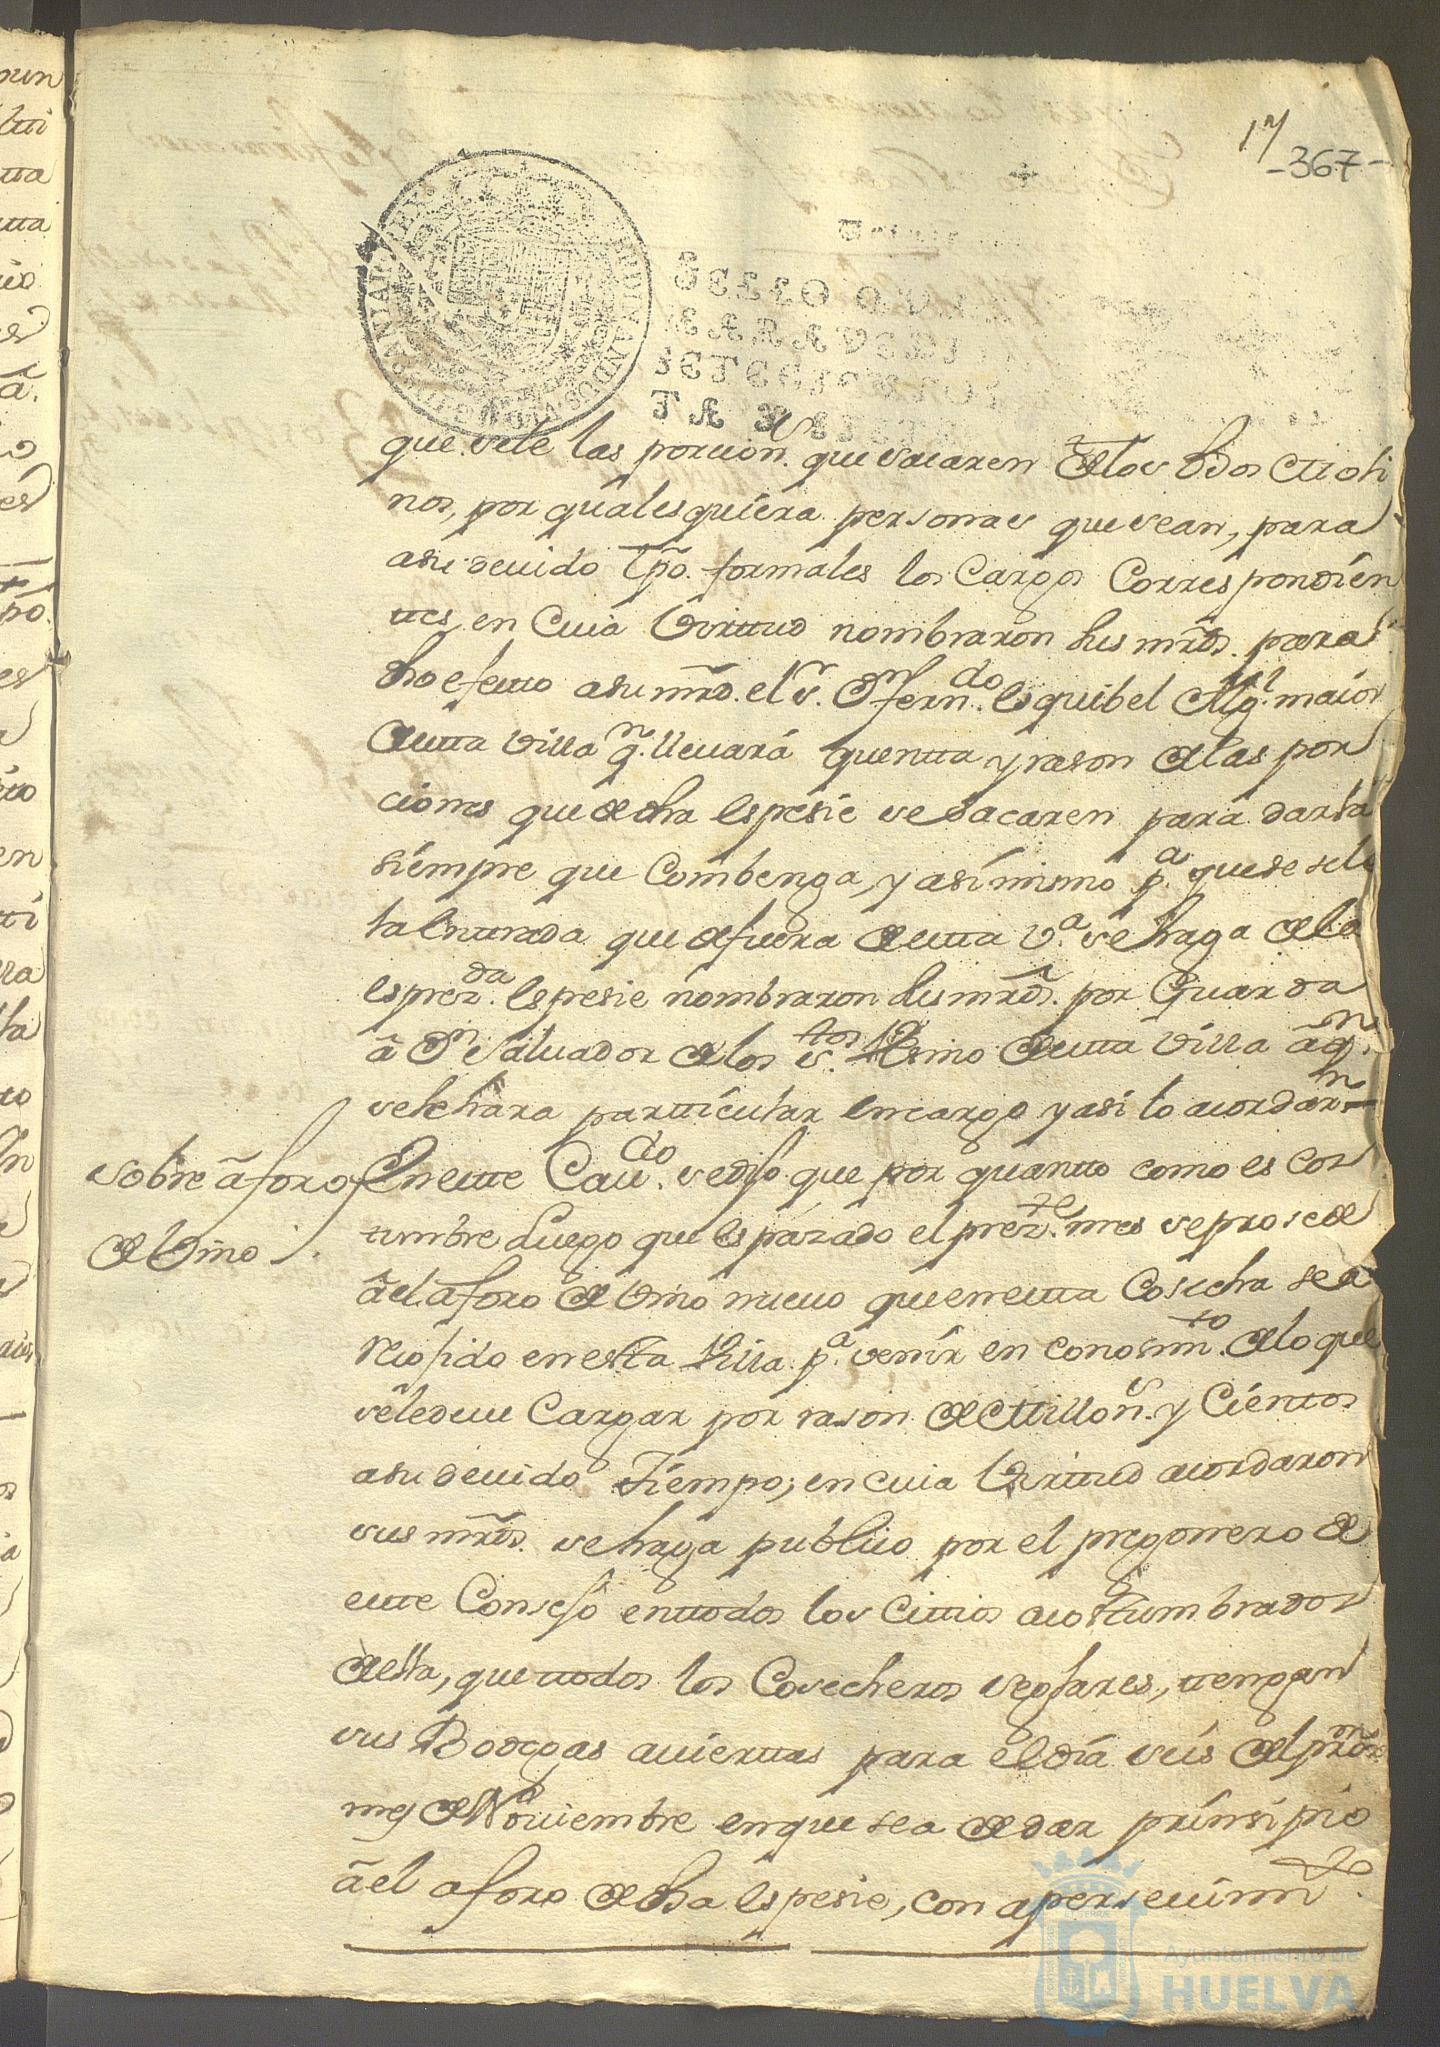 17
-367-
FERDINANDUS VI D G HISPANIAR REX
SELLO QVARTO
MARAVEDIS
SETECIENTOS
TA
que vele las porcion.s que sacaren de los dhos Moli
nos, por quales quiera personas que sean, para
a su devido tpo. formales los Cargos Correspondien
ttes, en Cuia Virttud nombraron sus mrds. para
dho efectto a su mrd. el s.r D.n fern.do Esquibel Alg.l maior
de estta Villa q.n llevará quentta y rason de las por
ciones que de dha Espesie se sacaren para darla
siempre que Combenga, y asimismo p.a que se sele
la Enttrada que de fuera de estta V.a se haga de la
esprez.da Espesie nombraron sus mrds. por Guarda
â D.n Salvador de los s.tos Vesino de estta Villa â q.n
se le hara partticular encargo y asi lo acordar.n =
Sobre âforo
de Vino
En estte Cav.do se dijo que por quantto como es cos
tumbre Luego que es pazado el prez.te mes se prosede
âel aforo de Vino nuevo que en estta Cosecha se a
Recojido en esta Villa p.a venir en conosim.to de lo que
se le deve Cargar por rason de Millon.s y Cienttos
a su devido Tiempo; en cuia Virttud acordaron
sus mrds. se haga publico por el pregonero de
estte Consejo en ttodos los Cittios acostumbrados
de esta, que ttodos los Cosecheros seglares, ttengan
sus Bodegas aviertas para el dia seis del
mes de Noviembre en que se a de dar prinsipio
âel aforo de dha Espesie, con apersevim.to
Ayuntamiento de
HUELVA